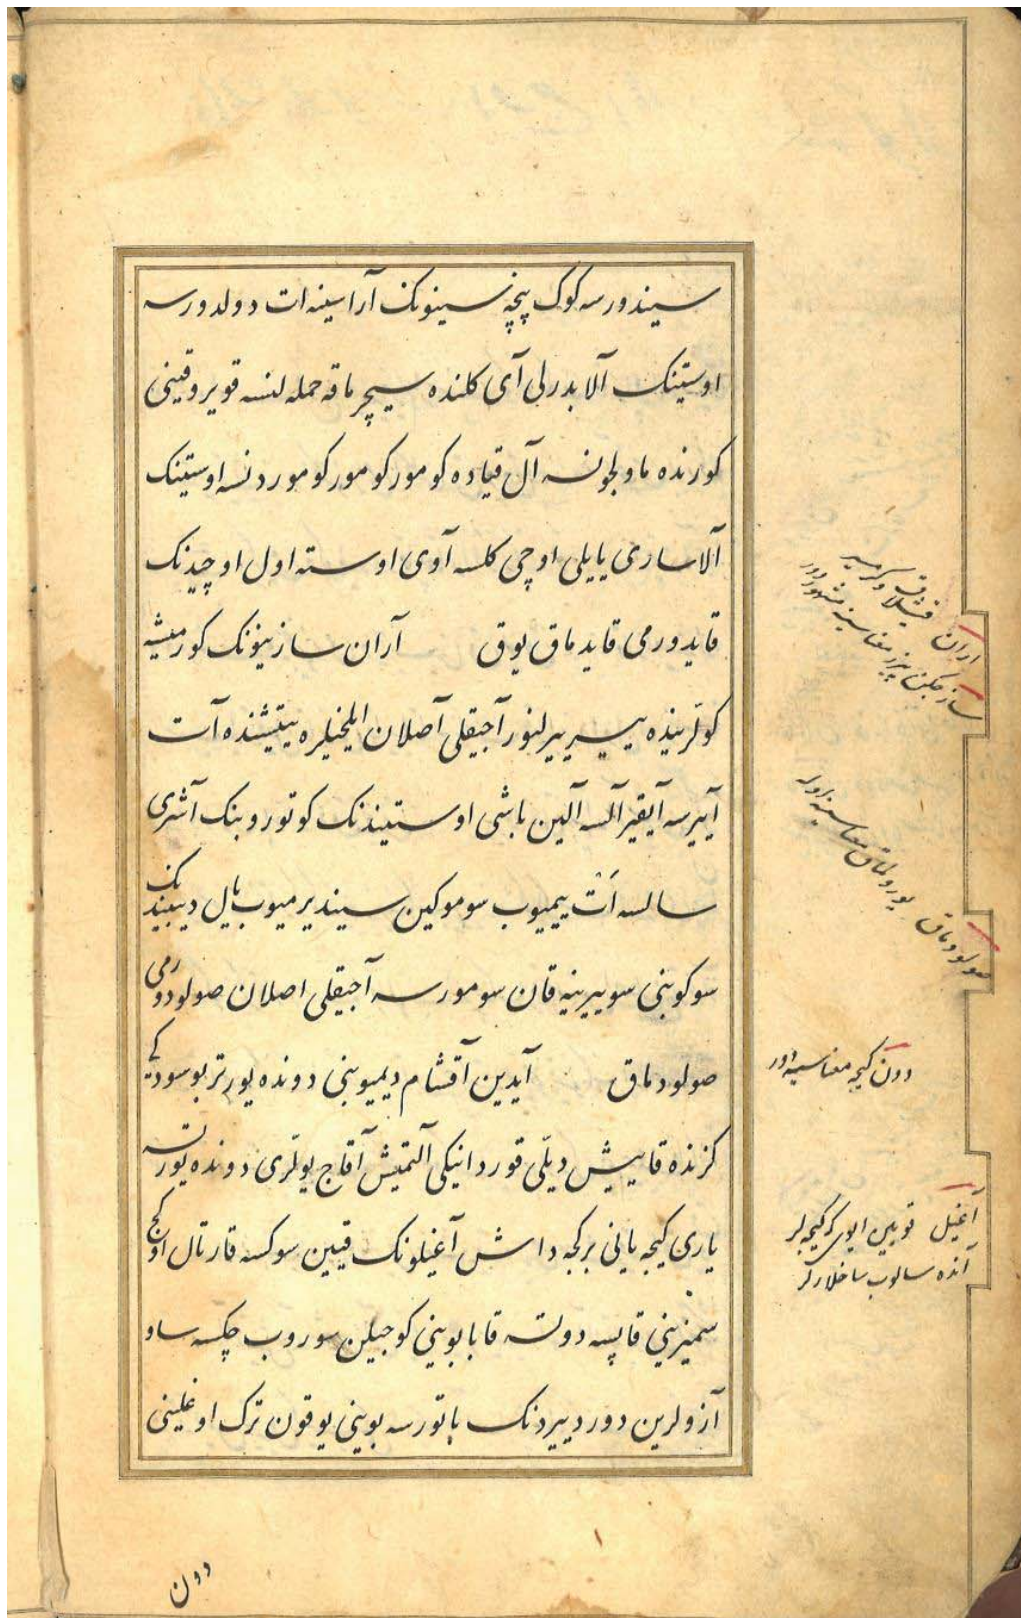 سیندورسه کوک پنچه سینونک آراسینه ات دولدورسه
اوستینک آلا بدرلی آی کلنده سیچرماقه حمله لنسه قویروقینی
کورنده ماولجونسه آل قیاده کومور کومور کوموردنسه اوستینک
آلا ساری یایلی اوچی کلسه آوی اوسته اول اوچیدنک
قایدورمی قایدماق یوق آران سازینونک کورمیشه
کولرینده بیسیریرلنور آجیقلی آصلان ایلخیلره ییتیشنده آت
آییرسه آیقیر آلسه آلین باشی اوستیندنک کوتوروبنک آشری
سالسه اَتْ ییمیوب سوموکین سیندیرمیوب بایل دیبیندنک
سوکوبنی سوییرینه قان سومورسه آجیقلی اصلان صولودورمی
صولودماق آیدین آقشام دیمیوبنی دونده یورتر بوسودیکی
کزنده قاییش دیلّی قوردانیکی آلتمیش آقاج یولری دونده یورتسه
یاری کیجه یانی برکجه داش آغیلونک قیین سوکسه قارتال اوکج
سمیزینی قاپسه دولته قابا بوینی کوجیلن سوروب چکسه ساو
آزولرین دوردییردنک باتورسه بوینی یوقون ترک اوغلینی
اران قیشلاق و کرمسیر
ساز جکن بیرز معناسینه مشهوردور
صولودماق یورولماق معناسینه دور
دون کیجه معناسینه دور
آغیل قویین ایوی که کیجه لر
آنده سالوب ساخلارلر
دون